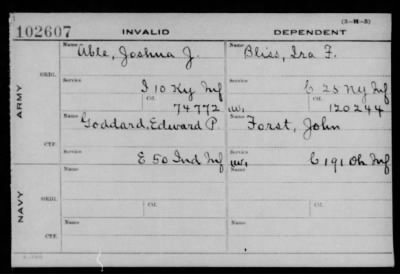 (3-H-5)
102607 INVALID DEPENDENT
Name Able, Joshua J. Name Bliss, Ira F.
ARMY
ORIG.
Service I 10 Ky Inf Service C 25 Ny Inf
Ctf. 74772 (W) Ctf. 120244
Name Goddard, Edward P. Name Forst, John
CTF.
Service E 50 Ind Inf (W) Service C 191 Oh Inf
NAVY
Name Name
ORIG.
Ctf. Ctf.
Name Name
CTF.